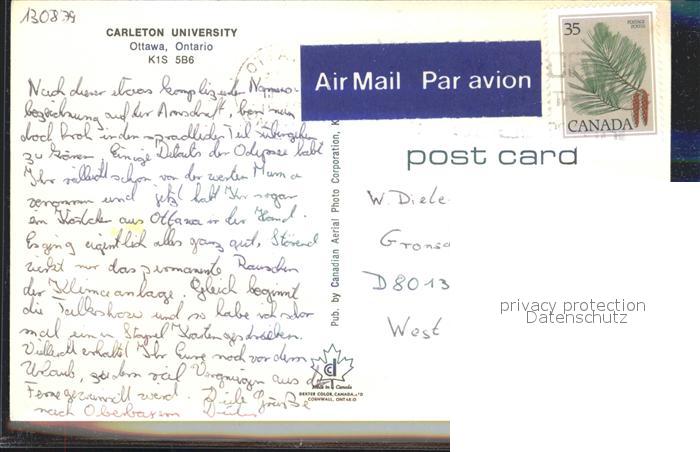 130879
CARLETON UNIVERSITY
Ottawa, Ontario
K1S 5B6
Nach dieser etwas komplizierten Namens-
bezeichnung auf der Anschrift, kann man
doch froh in den sprachlichen Teil übergehen
zu können. Einige Details der Odyssee habt
Ihr vielleicht schon von der werten Mama
vernommen und jetzt habt Ihr sogar
ein Kärtchen aus Ottawa in der Hand.
Es ging eigentlich alles ganz gut. Störend
wirkt nur das permanente Rauschen
der Klimaanlage. Gleich beginnt
die und so habe ich schon
mal einen Stapel Karten geschrieben.
Vielleicht erhaltet Ihr Eure noch vor dem
Urlaub, zu dem viel Vergnügen aus der
Ferne gewünscht wird. Viele Grüße
nach Oberbayern
Air Mail Par avion
35
POSTAGE
POSTES
CANADA
post card
Pub. by Canadian Aerial Photo Corporation, K
W. Diele
Grons
D8013
West
Made in Canada
DEXTER COLOR, CANADA, LTD
CORNWALL, ONTARIO
privacy protection
Datenschutz